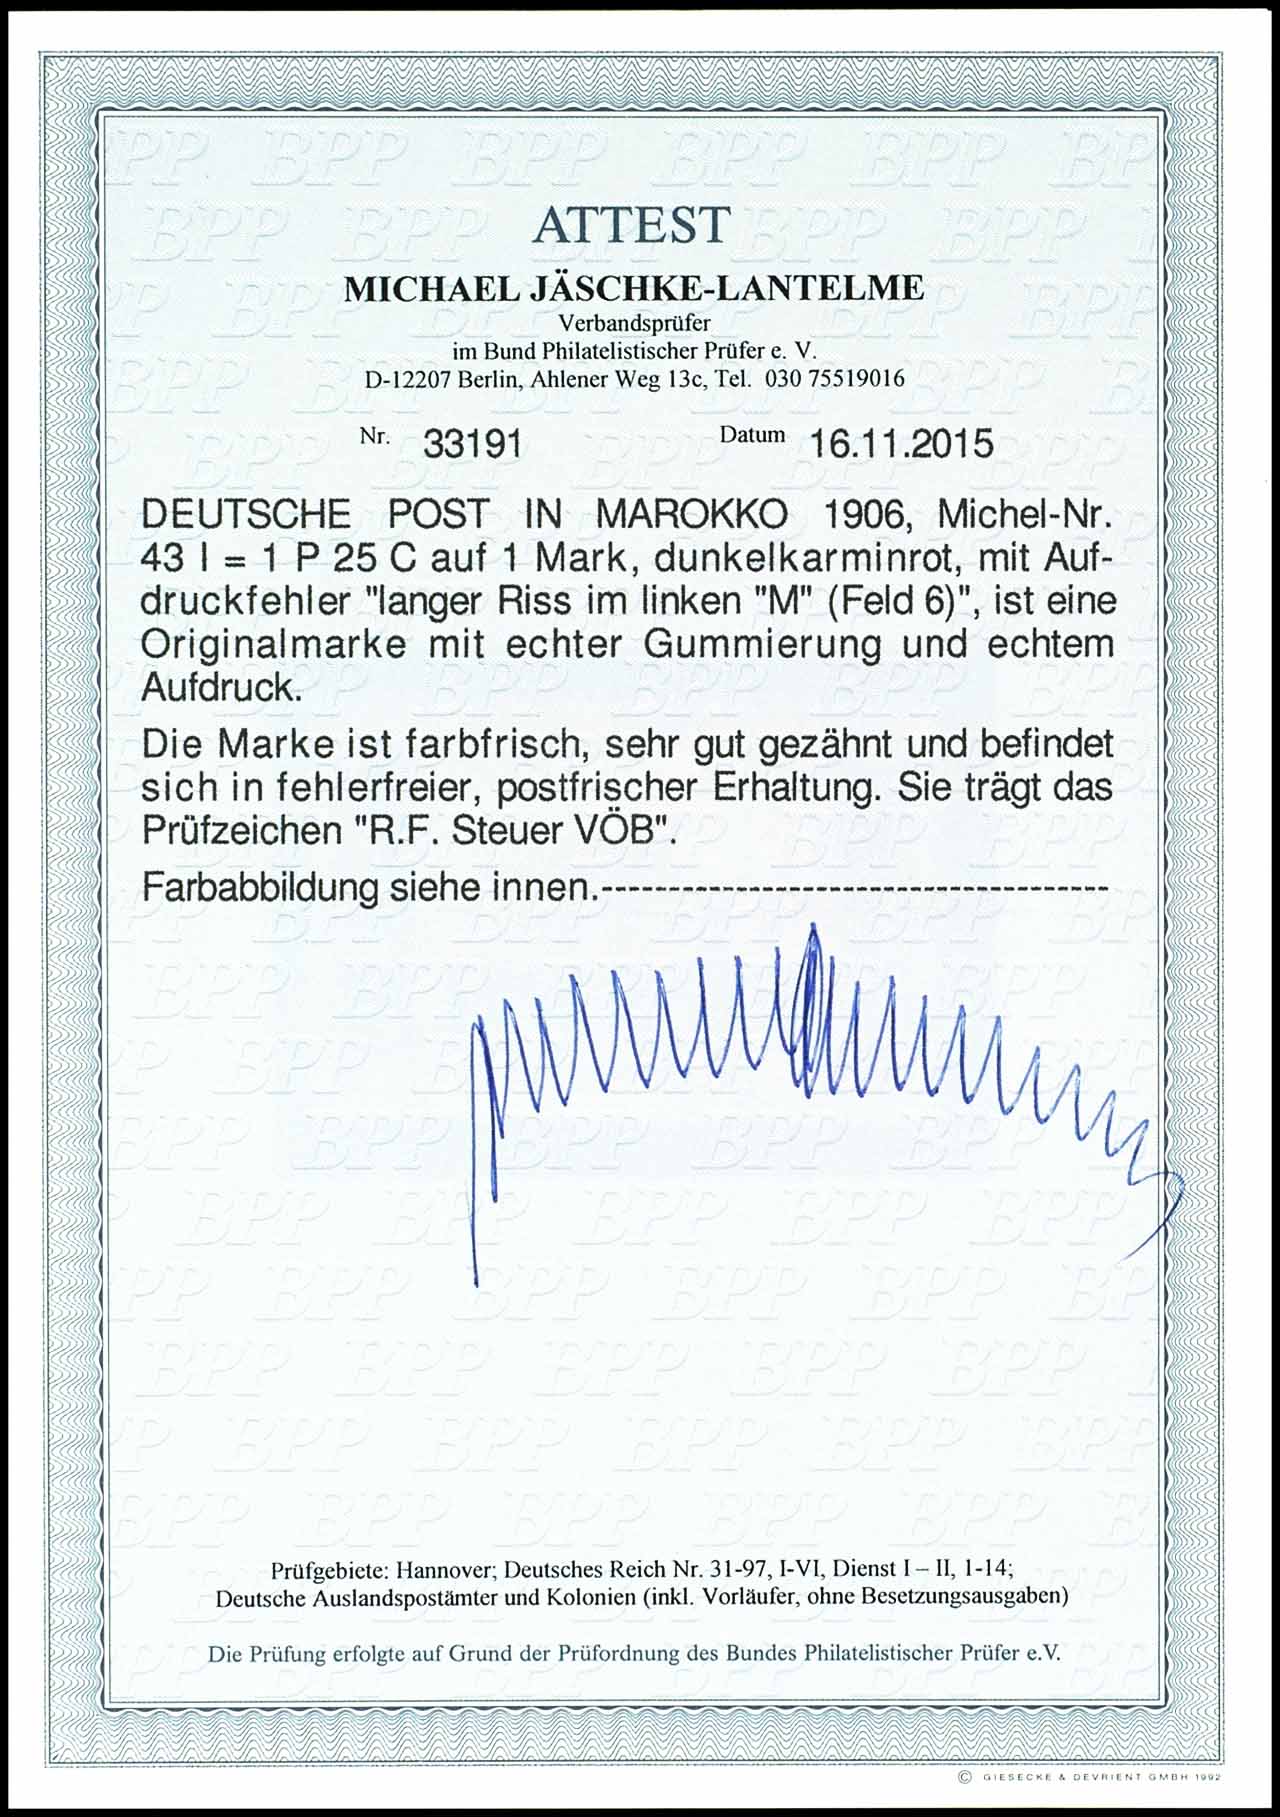 ATTEST
MICHAEL JÄSCHKE-LANTELME
Verbandsprüfer
im Bund Philatelistischer Prüfer e. V.
D-12207 Berlin, Ahlener Weg 13c, Tel. 030 75519016
Nr. 33191 Datum 16.11.2015
DEUTSCHE POST IN MAROKKO 1906, Michel-Nr.
43 I = 1 P 25 C auf 1 Mark, dunkelkarminrot, mit Auf-
druckfehler "langer Riss im linken "M" (Feld 6)", ist eine
Originalmarke mit echter Gummierung und echtem
Aufdruck.
Die Marke ist farbfrisch, sehr gut gezähnt und befindet
sich in fehlerfreier, postfrischer Erhaltung. Sie trägt das
Prüfzeichen "R.F. Steuer VÖB".
Farbabbildung siehe innen.--------------------------------------
Prüfgebiete: Hannover; Deutsches Reich Nr. 31-97, I-VI, Dienst I – II, 1-14;
Deutsche Auslandspostämter und Kolonien (inkl. Vorläufer, ohne Besetzungsausgaben)
Die Prüfung erfolgte auf Grund der Prüfordnung des Bundes Philatelistischer Prüfer e.V.
© GIESECKE & DEVRIENT GMBH 1992